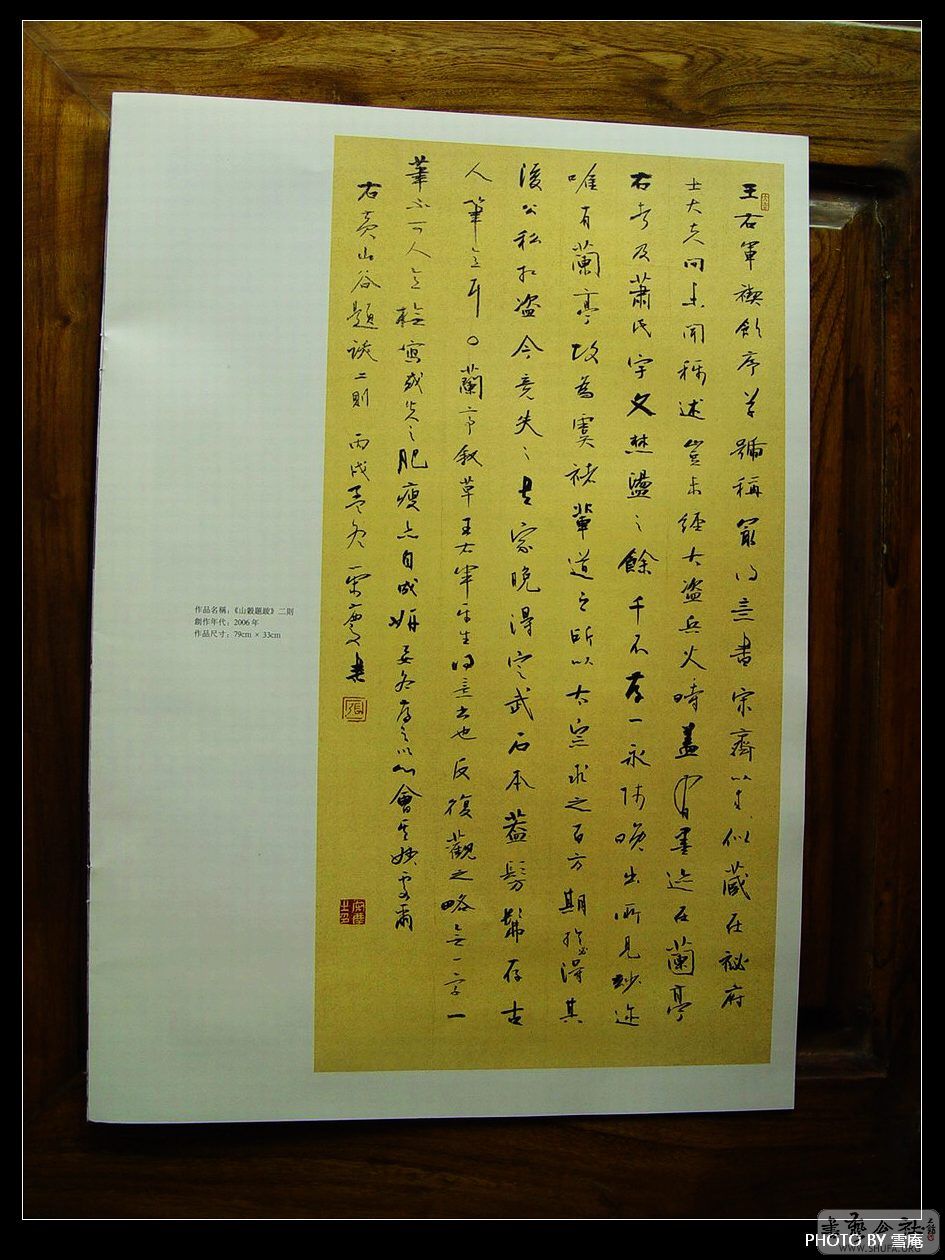 王右軍禊飲序草號稱最得意書宋齊間似藏在祕府
士大夫間未聞稱述豈未經大盜兵火時蓋有墨迹在蘭亭
右者及蕭氏宇文焚盪之餘千不存一永師晚出所見妙迹
唯有蘭亭故為虞褚輩道之所以太宗求之百方期於必得其
後公私相盜今竟失之書家晚得定武石本蓋髣髴存古
人筆意耳○蘭亭叙草王右軍平生得意書也反復觀之略無一字一
筆不可人意摹寫或失之肥瘦亦自成妍要各存之以心會其妙處爾
右黃山谷題跋二則 丙戌孟冬 榮慶書
張
作品名稱：《山穀題跋》二則
創作年代：2006 年
作品尺寸：79cm × 33cm
書藝公社
WWW.SHUFA.ORG
PHOTO BY 雪庵